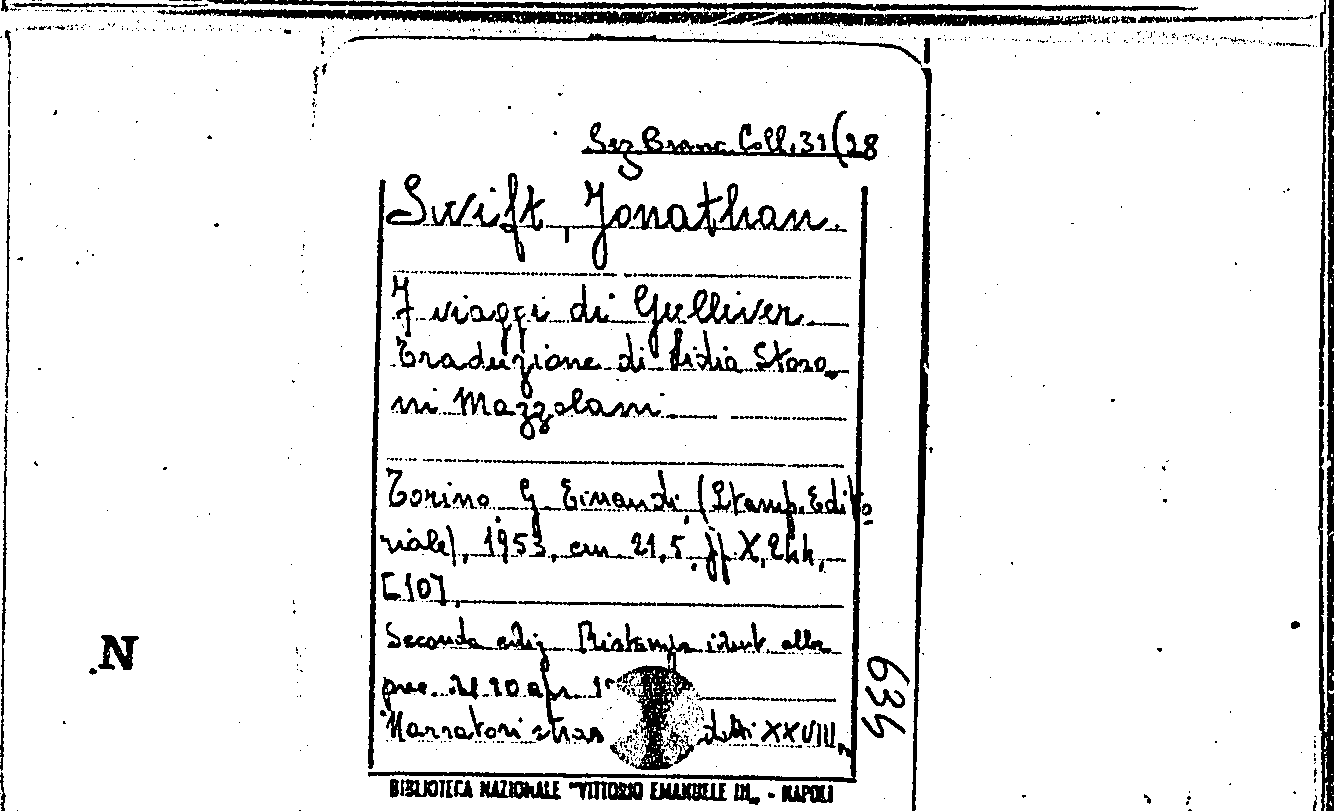 Sez Branc. Coll. 31(28
Swift, Jonathan.
I viaggi di Gulliver.
Traduzione di Lidia Storo
ni Mazzolani.
Torino. G. Einaudi, (Stamp. Edito
riale), 1953, cm. 21,5, pp X, 244,
[10].
Seconda ediz. Ristampa ident. alla
prec. del 20 apr. 19
Narratori stran detti XXVIII.
634
N
BIBLIOTECA NAZIONALE "VITTORIO EMANUELE III„ - NAPOLI